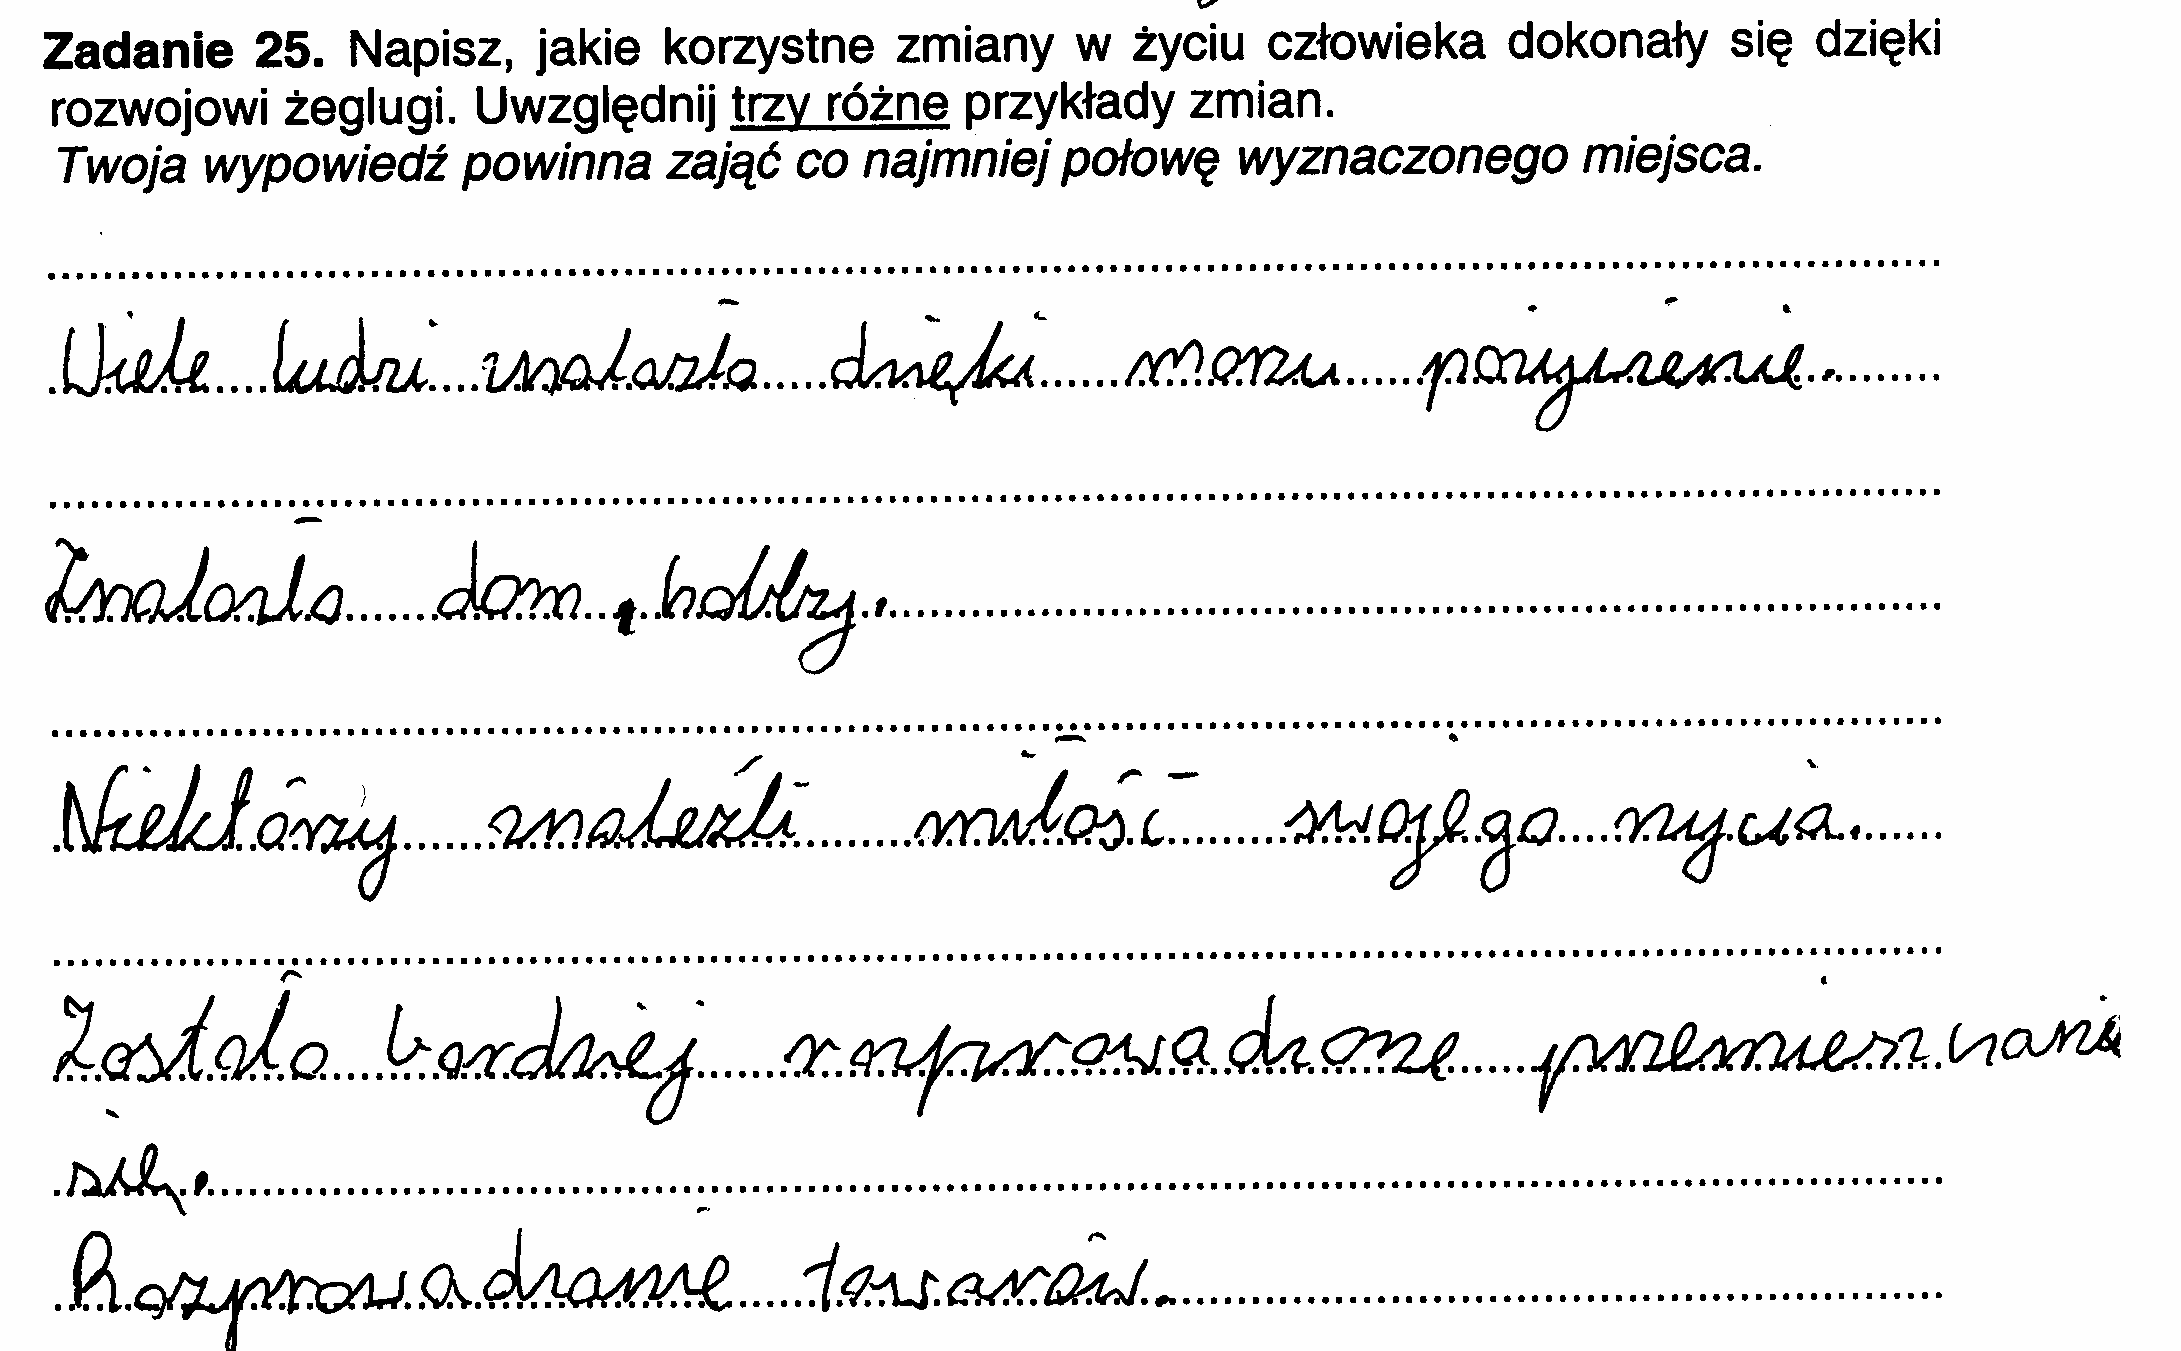 Zadanie 25. Napisz, jakie korzystne zmiany w życiu człowieka dokonały się dzięki
rozwojowi żeglugi. Uwzględnij trzy różne przykłady zmian.
Twoja wypowiedź powinna zająć co najmniej połowę wyznaczonego miejsca.
Wiele ludzi znalazło dzięki morzu pożywienie.
Znalazło dom, hobby.
Niektórzy znaleźli miłość swojego życia.
Zostało bardziej rozprowadzone przemieszczanie
się.
Rozprowadzanie towarów.